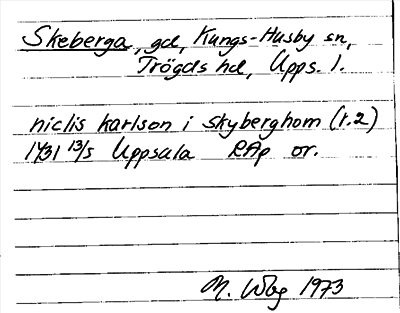 Skeberga, gd, Kungs-Husby sn,
Trögds hd, Upps. l.
niclis karlson i skyberghom (r.2)
1431 13/5 Uppsala RAp or.
M. Wbg 1973